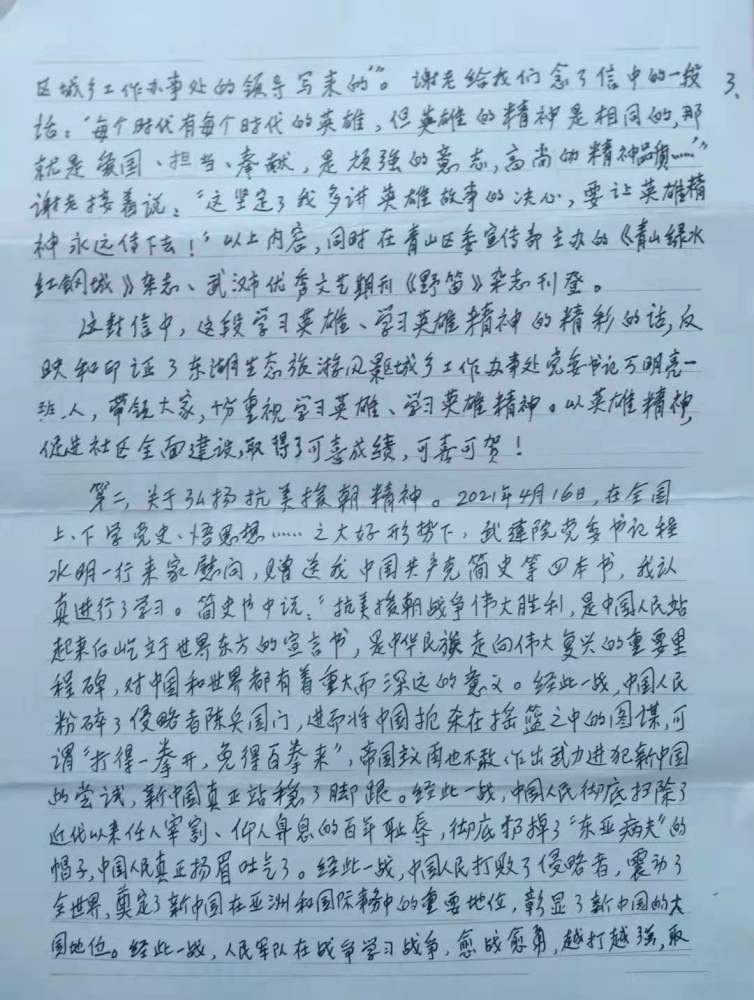 3、
区城乡工作办事处的领导写来的”。谢老给我们念了信中的一段
话：“每个时代有每个时代的英雄，但英雄的精神是相同的，那
就是爱国、担当、奉献，是顽强的意志，高尚的精神品质……”
谢老接着说：“这坚定了我多讲英雄故事的决心，要让英雄精
神永远传下去！”以上内容，同时在青山区委宣传部主办的《青山绿水
红钢城》杂志、武汉市优秀文艺期刊《野笛》杂志刊登。
这封信中，这段学习英雄、学习英雄精神的精彩的话，反
映和印证了东湖生态旅游风景区城乡工作办事处党委书记万明亮一
班人，带领大家，十分重视学习英雄、学习英雄精神。以英雄精神，
促进社区全面建设，取得了可喜成绩，可喜可贺！
第二，关于弘扬抗美援朝精神。2021年4月16日，在全国
上、下学党史、悟思想……之大好形势下，武建院党委书记程
水明一行来家慰问，赠送我中国共产党简史等四本书，我认
真进行了学习。简史书中说：“抗美援朝战争伟大胜利，是中国人民站
起来后屹立于世界东方的宣言书，是中华民族走向伟大复兴的重要里
程碑，对中国和世界都有着重大而深远的意义。经此一战，中国人民
粉碎了侵略者陈兵国门，进而将中国扼杀在摇篮之中的图谋，可
谓“打得一拳开，免得百拳来”，帝国主义再也不敢作出武力进犯新中国
的尝试，新中国真正站稳了脚跟。经此一战，中国人民彻底扫除了
近代以来任人宰割、仰人鼻息的百年耻辱，彻底扔掉了“东亚病夫”的
帽子，中国人民真正扬眉吐气了。经此一战，中国人民打败了侵略者，震动了
全世界，奠定了新中国在亚洲和国际事务中的重要地位，彰显了新中国的大
国地位。经此一战，人民军队在战争学习战争，愈战愈勇，越打越强，取